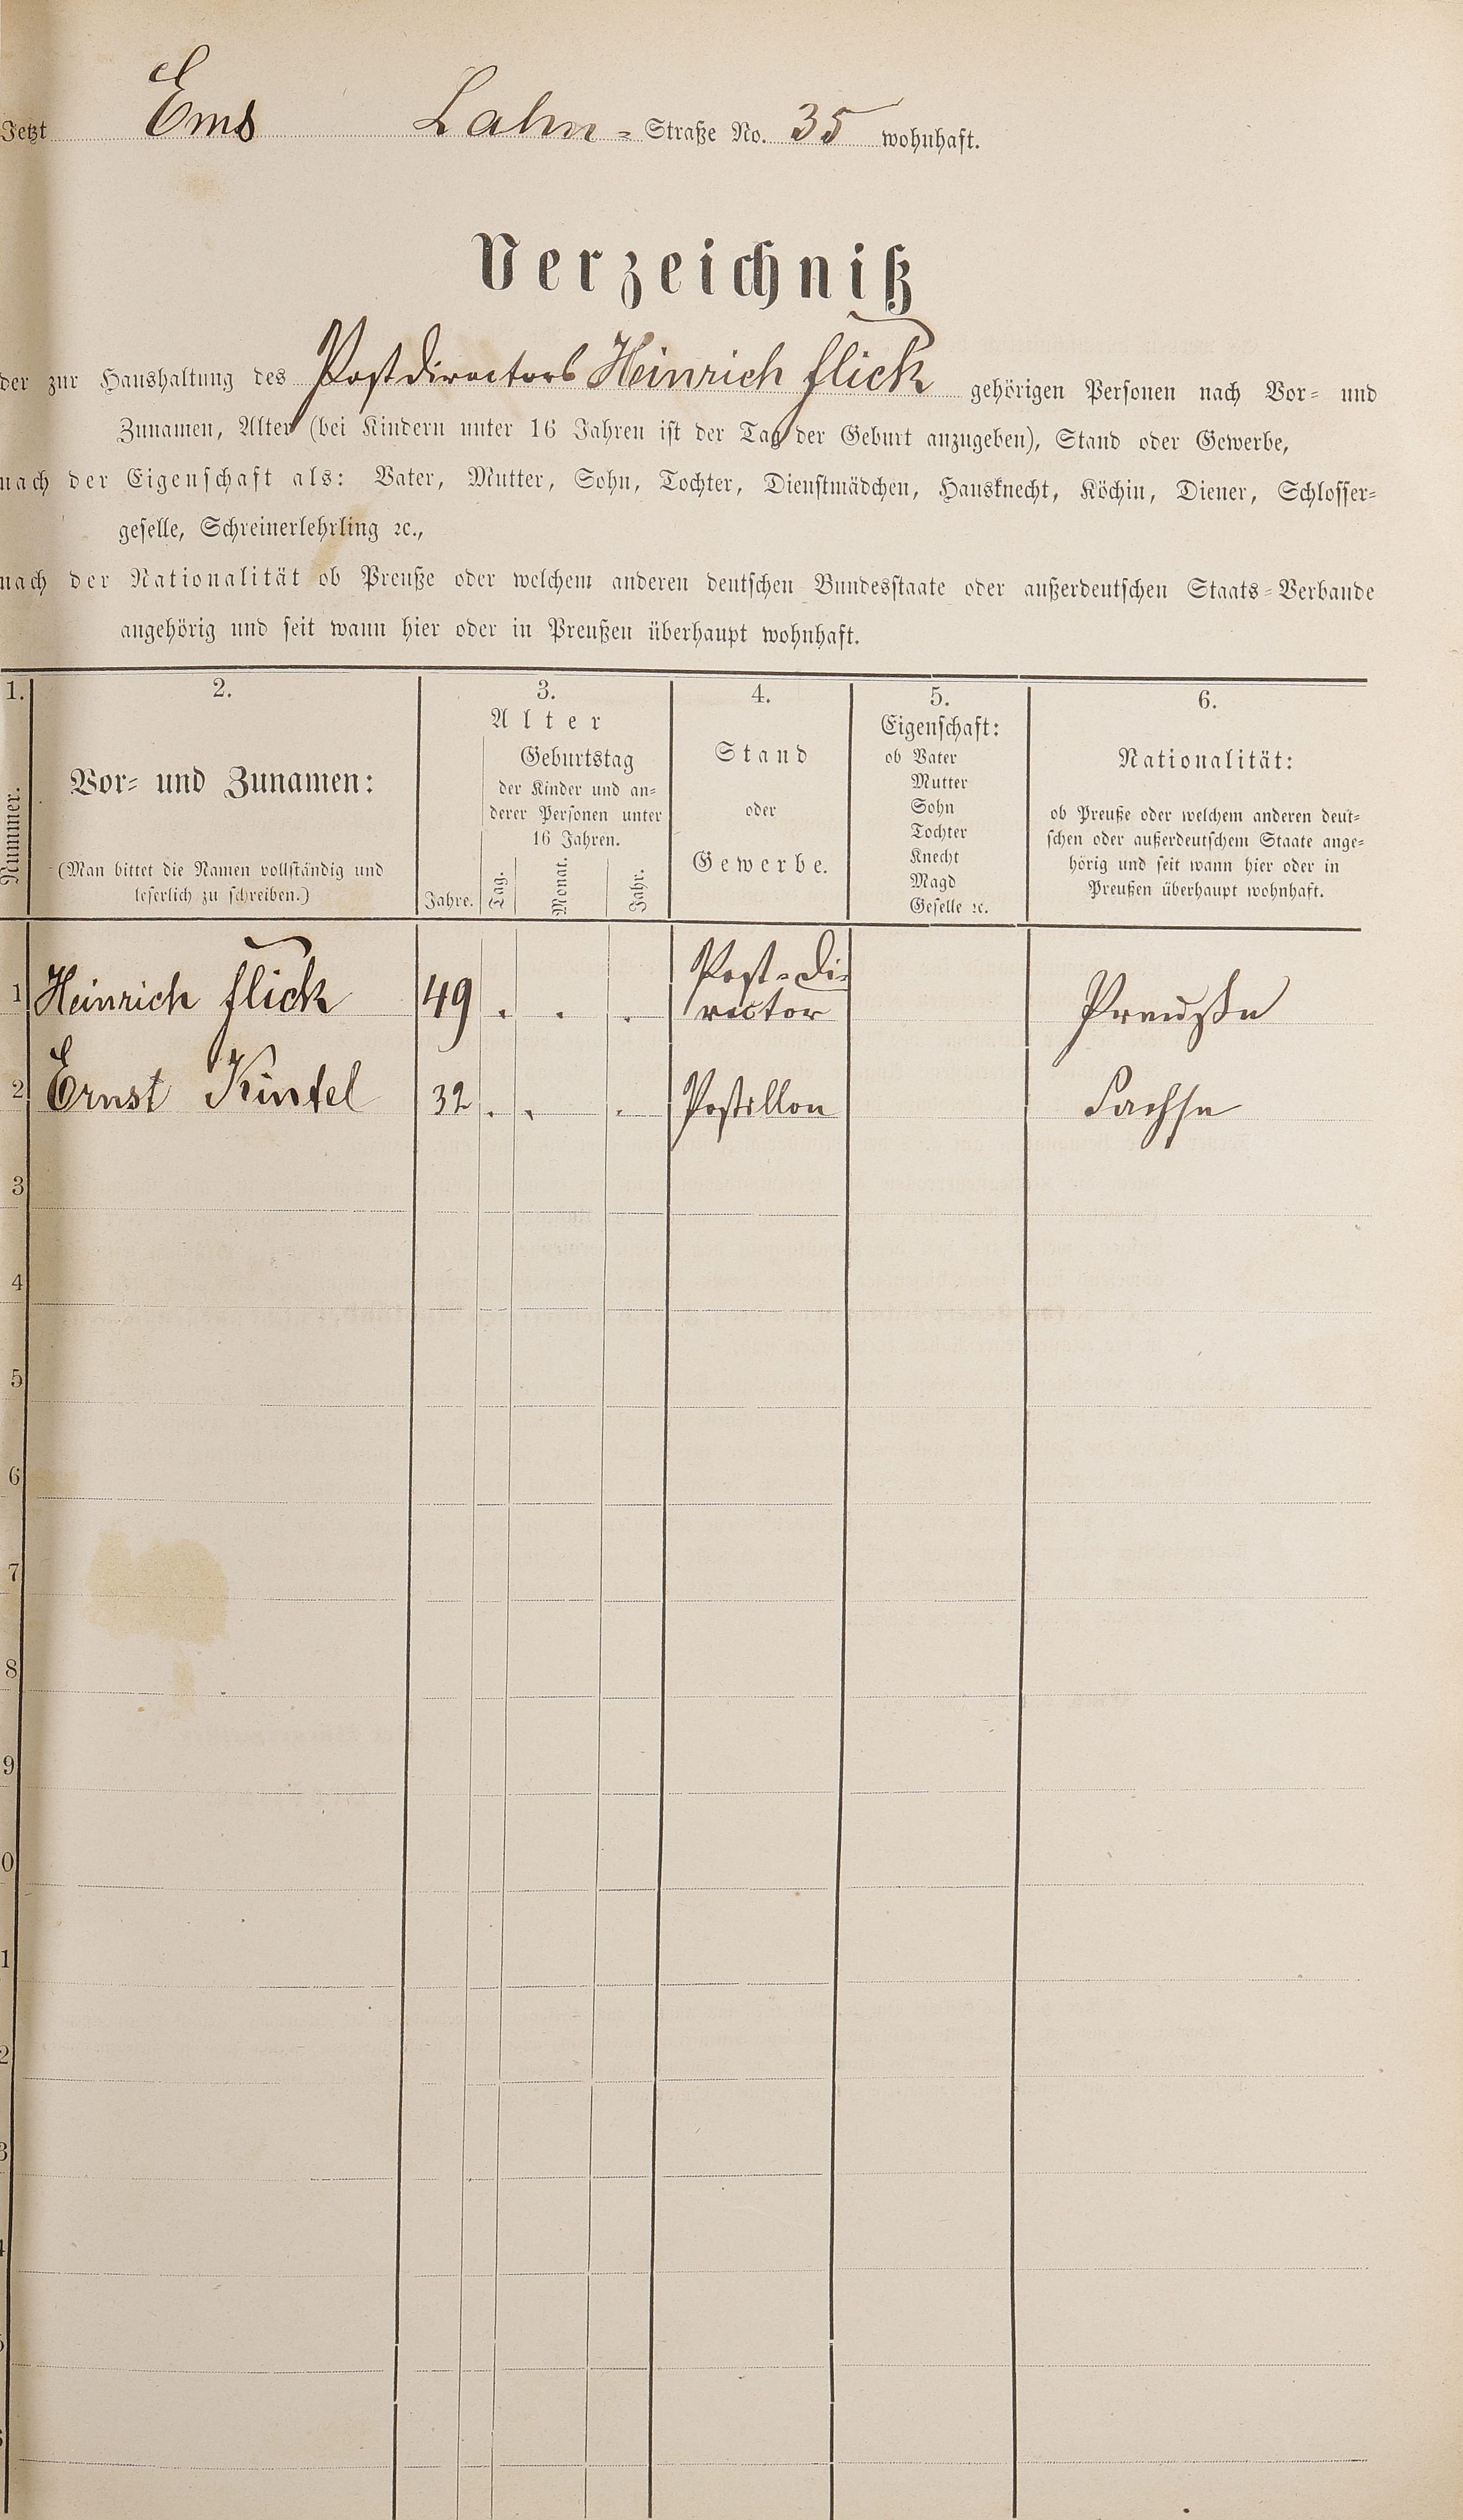 Jetzt Ems Lahn-Straße No. 35 wohnhaft.
Verzeichniß
der zur Haushaltung des Postdirectors Heinrich Flick gehörigen Personen nach Vor- und
Zunamen, Alter (bei Kindern unter 16 Jahren ist der Tag der Geburt anzugeben), Stand oder Gewerbe,
nach der Eigenschaft als: Vater, Mutter, Sohn, Tochter, Dienstmädchen, Hausknecht, Köchin, Diener, Schlosser-
geselle, Schreinerlehrling ꝛc.,
nach der Nationalität ob Preuße oder welchem anderen deutschen Bundesstaate oder außerdeutschen Staats-Verbande
angehörig und seit wann hier oder in Preußen überhaupt wohnhaft.
1. 2. 3. 4. 5. 6.
Nummer.
Vor- und Zunamen:
(Man bittet die Namen vollständig und
leserlich zu schreiben.)
Alter
Geburtstag
der Kinder und an-
derer Personen unter
16 Jahren.
Jahre. Tag. Monat. Jahr.
Stand
oder
Gewerbe.
Eigenschaft:
ob Vater
Mutter
Sohn
Tochter
Knecht
Magd
Geselle ꝛc.
Nationalität:
ob Preuße oder welchem anderen deut-
schen oder außerdeutschem Staate ange-
hörig und seit wann hier oder in
Preußen überhaupt wohnhaft.
1 Heinrich Flick 49 . . . Post-Di-
rector Preuße
2 Ernst Kintel 32 . . . Postillon Sachse
3
4
5
6
7
8
9
0
1
2
3
4
5